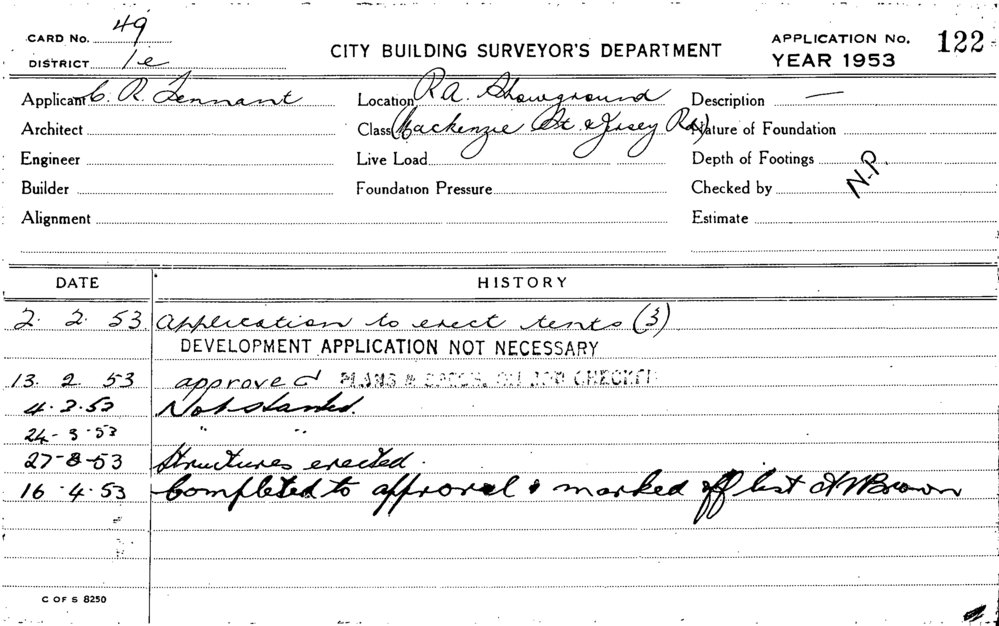 CARD No. 49
DISTRICT 1e
CITY BUILDING SURVEYOR'S DEPARTMENT
APPLICATION No. 122
YEAR 1953
Applicant C. R. Tennant
Location R.A. Showground
Description —
Architect
Class (Mackenzie St. & Jersey Rd)
Nature of Foundation
Engineer
Live Load
Depth of Footings
Builder
Foundation Pressure
Checked by N.P.
Alignment
Estimate
DATE HISTORY
2. 2. 53 Application to erect tents (3)
DEVELOPMENT APPLICATION NOT NECESSARY
13. 2. 53 approved PLANS & ON JOB CHECKED
4.3.53 Not started.
24-3-53 " "
27-3-53 Structures erected.
16.4.53 Completed to approval & marked off list Brown
C OF S 8250